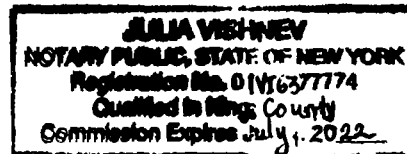 JULIA VISHNEV
NOTARY PUBLIC, STATE OF NEW YORK
Registration No. 01VI6377774
Qualified in Kings County
Commission Expires July 1. 2022